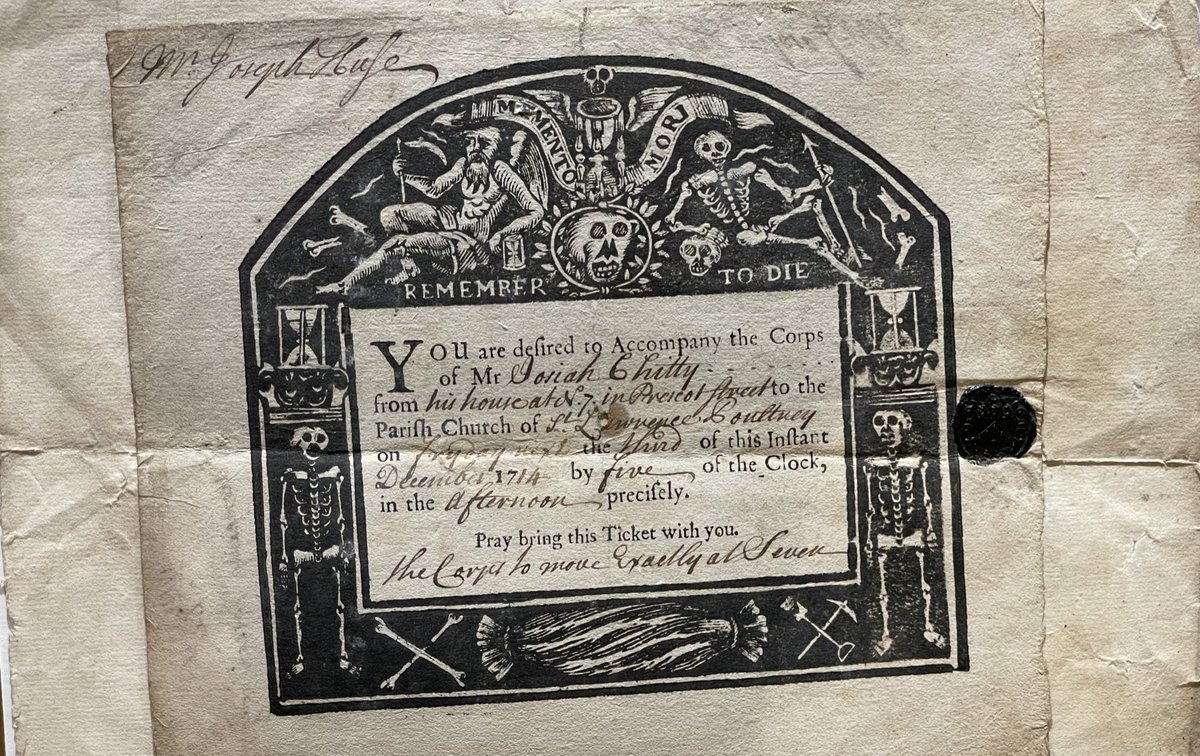 Mr. Joseph Huse
MEMENTO MORI
REMEMBER TO DIE
YOU are desired to Accompany the Corps
of Mr Josiah Chitty
from his house at No. 7 in Prescot street to the
Parish Church of St. Lawrence Poultney
on Fryday next the third of this Instant
December, 1714 by five of the Clock,
in the Afternoon precisely.
Pray bring this Ticket with you.
the Corps to move Exactly at Seven